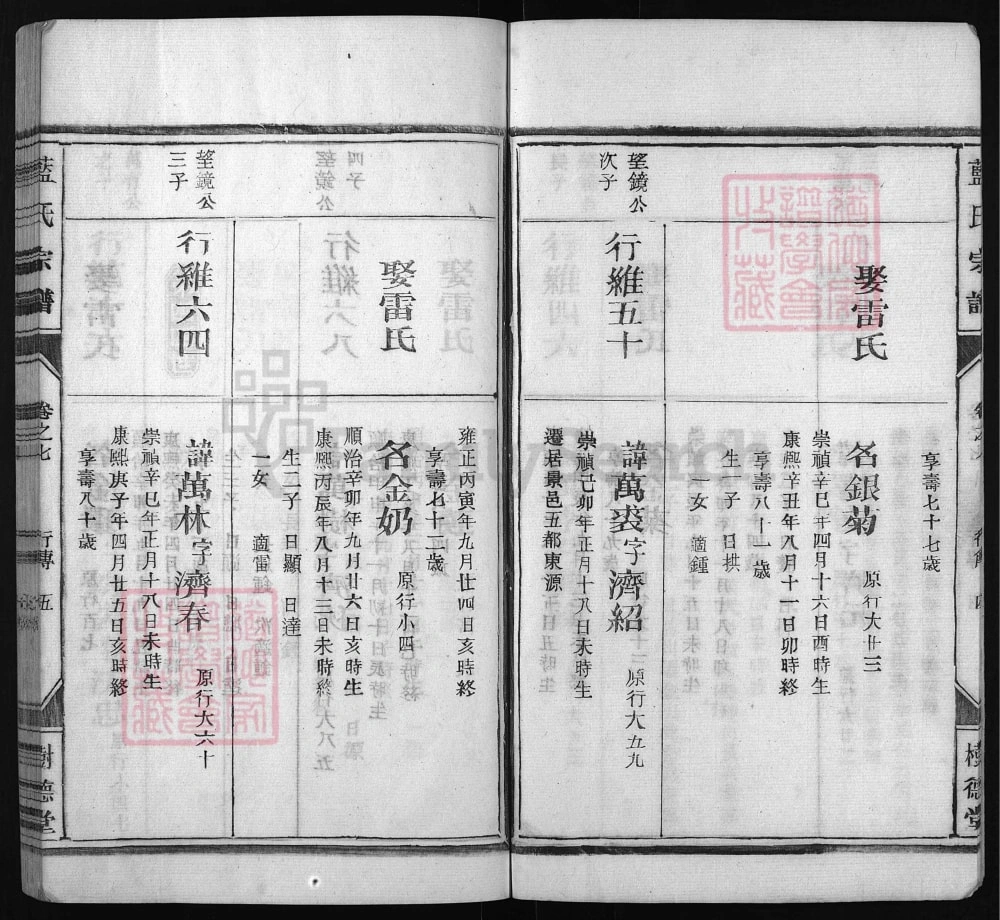 藍氏宗譜
享壽七十七歲
娶雷氏
名銀菊 原行大廿三
崇禎辛巳年四月十六日酉時生
康熙辛丑年八月十一日卯時終
享壽八十一歲
生一子 日拱
一女 適鍾
望鏡公
次子
行維五十
諱萬裘字濟紹 原行大五九
崇禎己卯年正月十八日未時生
遷居景邑五都東源
雍正丙寅年九月廿四日亥時終
享壽七十二歲
娶雷氏
名金奶 原行小四
順治辛卯年九月廿六日亥時生
康熙丙辰年八月十三日未時終
生二子 日顯 日達
一女 適雷
望鏡公
三子
行維六四
諱萬林字濟春 原行大六十
崇禎辛巳年正月十八日未時生
康熙庚子年四月廿五日亥時終
享壽八十歲
藍氏宗譜 卷之七 行傳 五 樹德堂